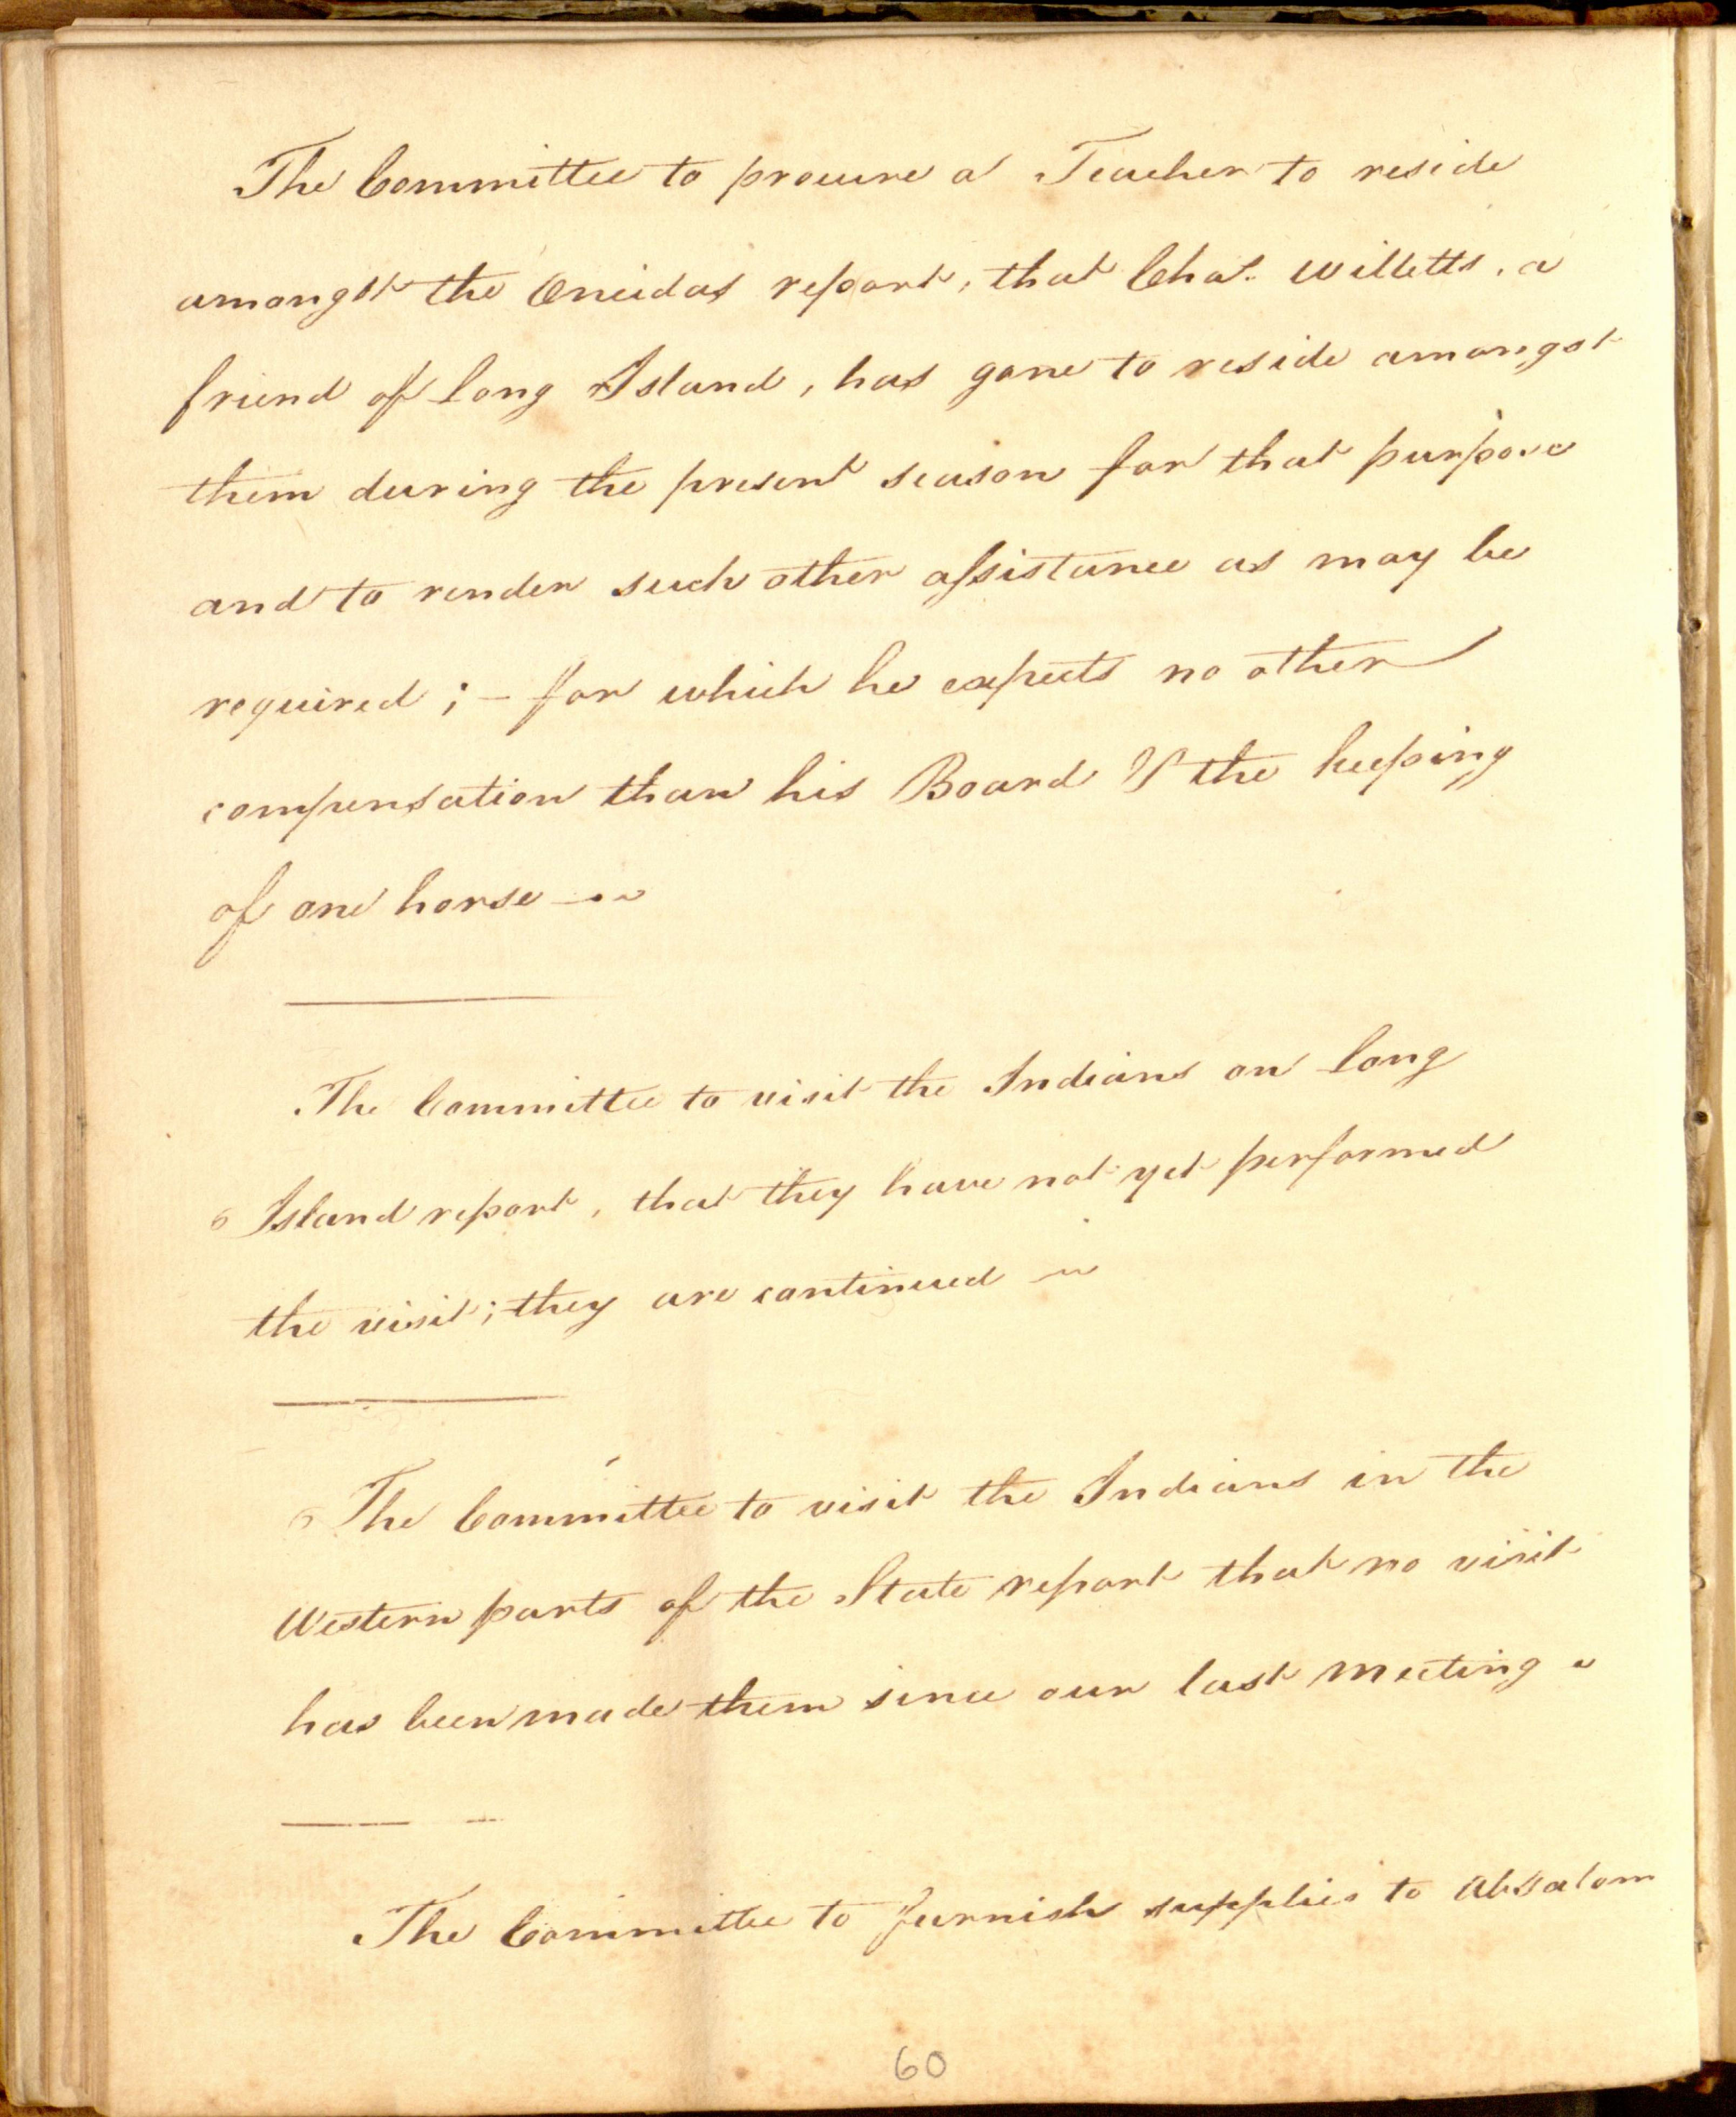 The Committee to procure a Teacher to reside
amongst the Oneidas report, that Chas. Willetts, a
friend of Long Island, has gone to reside amongst
them during the present season for that purpose
and to render such other assistance as may be
required ; – for which he expects no other
compensation than his Board & the keeping
of one horse —
The Committee to visit the Indians on Long
Island report, that they have not yet performed
the visit; they are continued —
The Committee to visit the Indians in the
Western parts of the State report that no visit
has been made them since our last meeting
The Committee to furnish supplies to Absalom
60